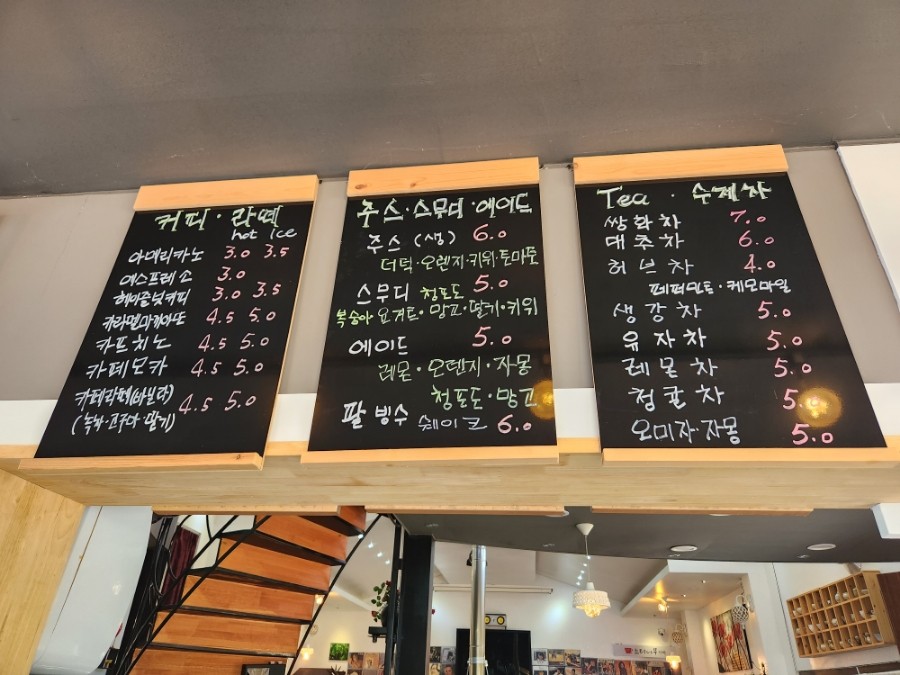 커피·라떼
hot ice
아메리카노 3.0 3.5
에스프레소 3.0
헤이즐넛커피 3.0 3.5
카라멜마끼아또 4.5 5.0
카프치노 4.5 5.0
카페모카 4.5 5.0
카페라떼(바닐라) 4.5 5.0
(녹차·고구마·딸기)
쥬스·스무디·에이드
쥬스 (생) 6.0
더덕·오렌지·키위·토마토
스무디 청포도 5.0
복숭아 요거트·망고·딸기·키위
에이드 5.0
레몬·오렌지·자몽
청포도·망고
팥 빙수 쉐이크 6.0
Tea · 수제차
쌍화차 7.0
대추차 6.0
허브차 4.0
페퍼민트·케모마일
생강차 5.0
유자차 5.0
레몬차 5.0
청귤차 5.0
오미자·자몽 5.0